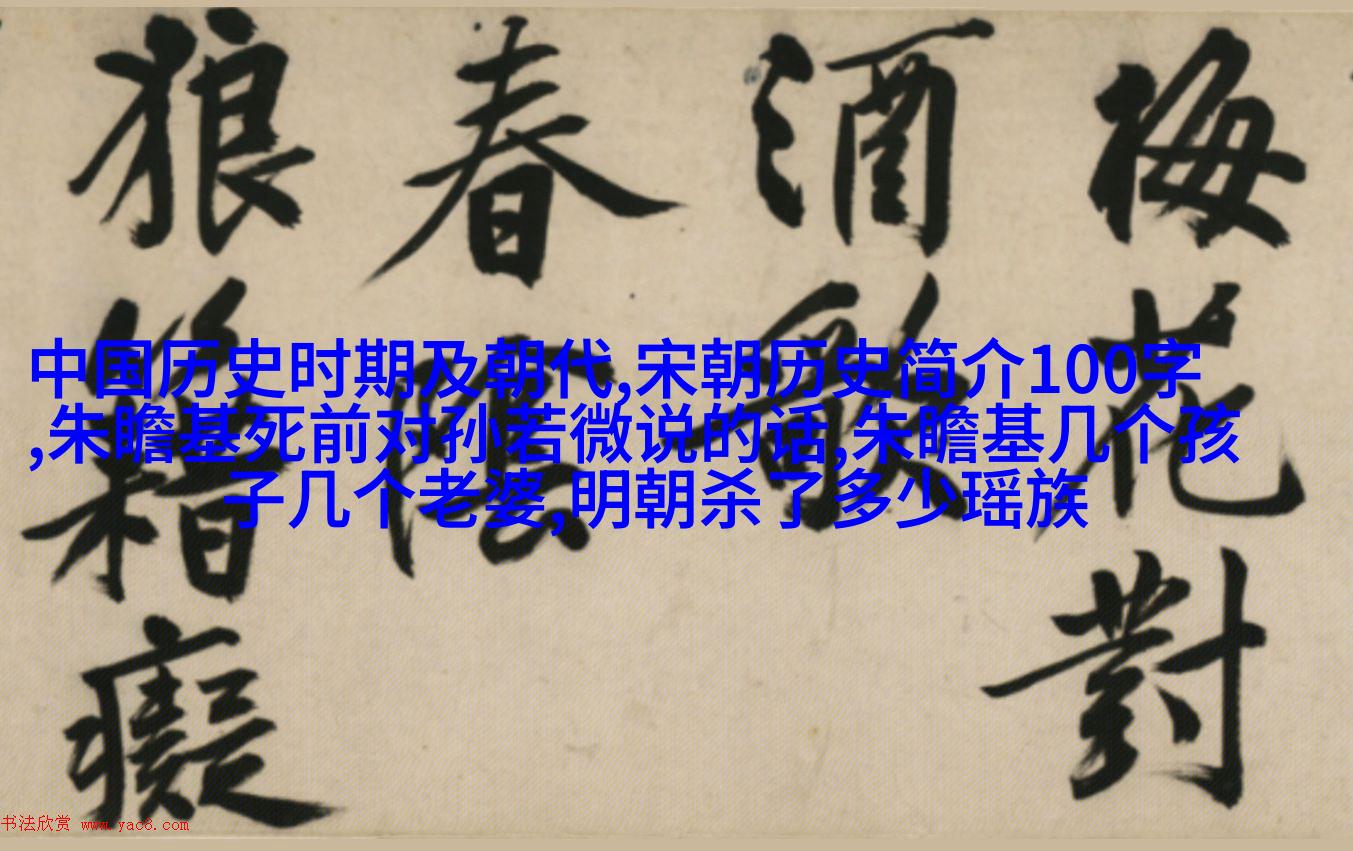 梅花對
酒
春
狼籍癡
中国历史时期及朝代,宋朝历史简介100字
,朱瞻基死前对孙若微说的话,朱瞻基几个孩
子几个老婆,明朝杀了多少瑶族
书法欣赏 www.yac8.com